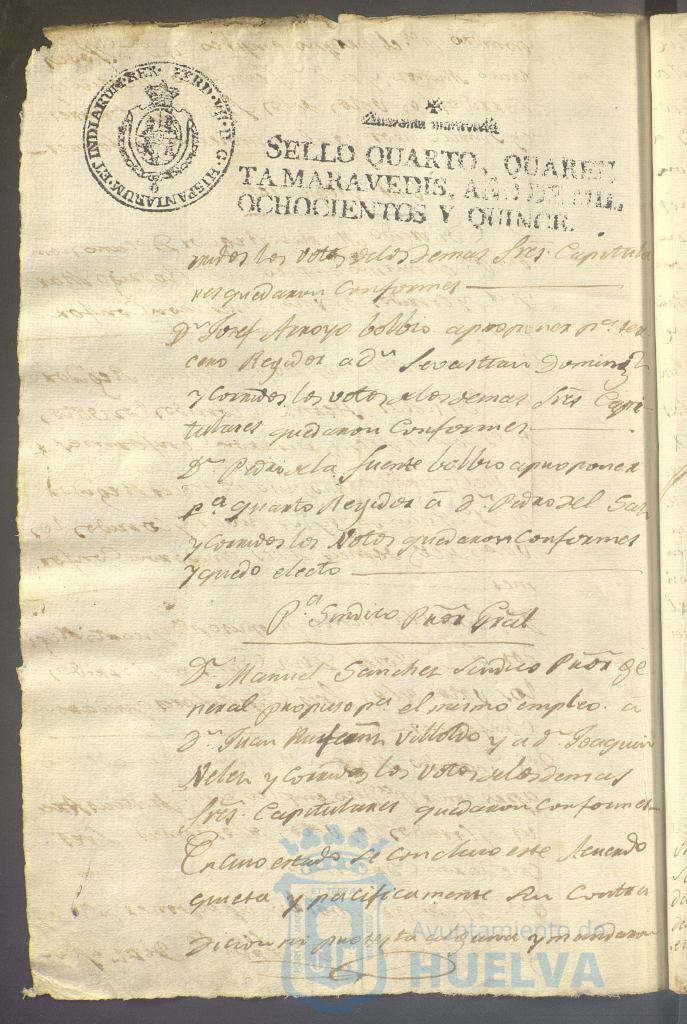 HISPANIARUM·ET INDIARUM·REX· FERD·VII·D·G·
Quarenta maravedis
SELLO QUARTO, QUAREN
TA MARAVEDIS, AÑO DE MIL
OCHOCIENTOS Y QUINCE.
rridos los votos delos demas Sres. Capitula
res quedaron Conformes
Dn. Josef Arroyo bolbio a proponer pa. ter
cero Regidor a Dn. Sevastian Doming
y Corridos los votos delos demas Sres. Capi
tulares quedaron Conformes
Dn. Pedro dela fuente bolbio a proponer
pa. quarto Regidor a Dn. Pedro del
y Corridos los Votos quedaron Conformes
y quedo electo
Pa. Sindico Prōr Grāl
Dn. Manuel Sanchez Sindico Prōr Ge
neral propuso pa. el mismo empleo a
Dn. Juan y a Dn. Joaquin
y Corridos los votos delos demas
Sres. Capitulares quedaron Conformes
En cuio estado se concluio este Acuerdo
quieta y pacificamente sin Contra
dicion ni protesta alguna y mandaron
Ayuntamiento de
HUELVA